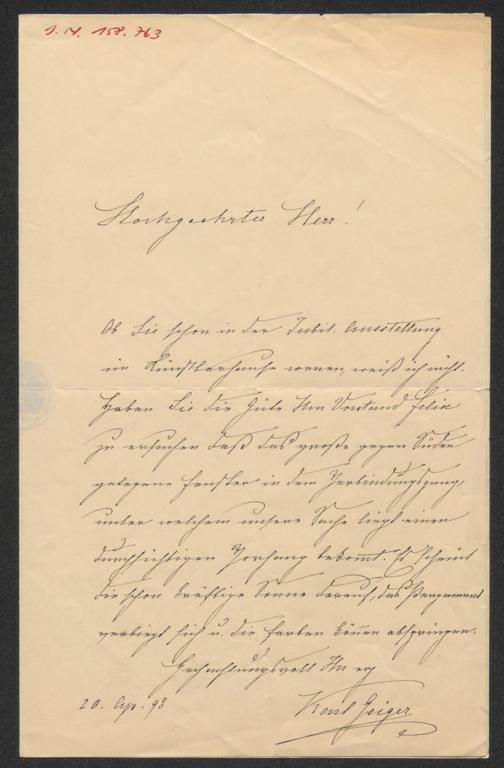 J. N. 158.763
Hochgeehrter Herr!
Ob Sie schon in der Jubil. Ausstellung
im Künstlerhause waren, weiß ich nicht.
Haben Sie die Güte Hrn Vorstand Felix
zu ersuchen daß das große gegen Süden
gelegene Fenster in dem Verbindungsgang,
unter welchem unsere Sache liegt einen
durchsichtigen Vorhang bekomt. Es scheint
die schon kräftige Sonne darauf, das Pergament
verbiegt sich u. die Farben könen abspringen.
Hochachtungsvoll Ihr erg
20. Ap. 98 Karl Geiger